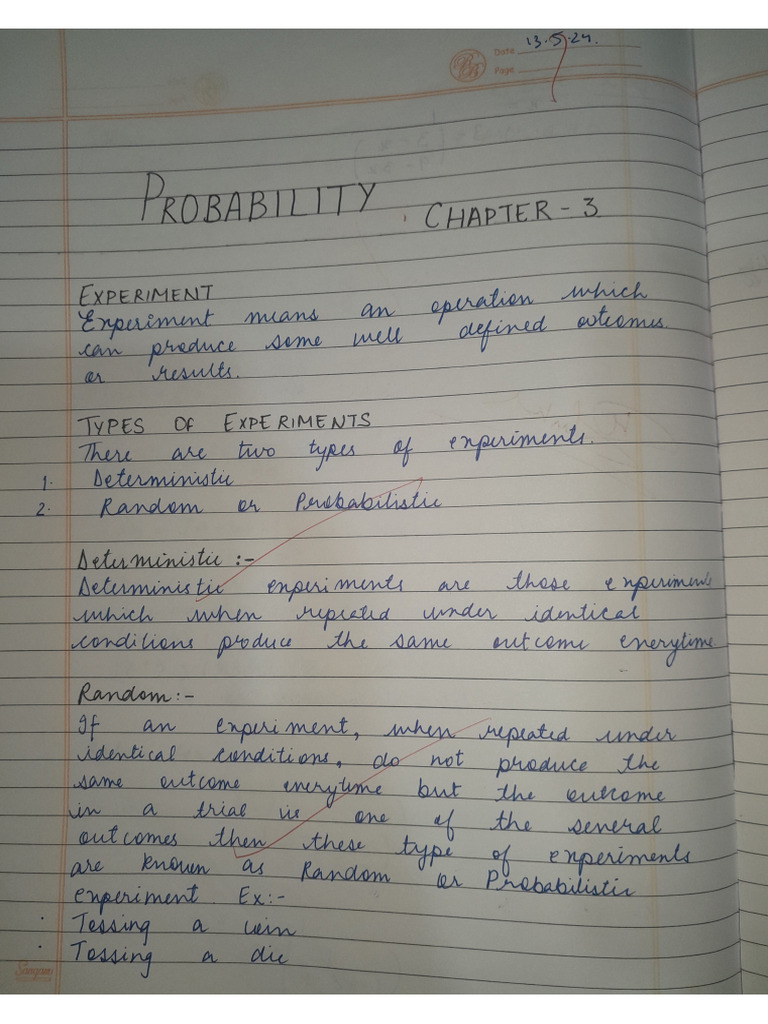 13.5.24.
Date
Page
PROBABILITY
CHAPTER - 3
EXPERIMENT
Experiment means an operation which
can produce some well defined outcomes
or results.
TYPES OF EXPERIMENTS
There are two types of experiments.
1. Deterministic
2. Random or Probabilistic
Deterministic :-
Deterministic experiments are those experiments
which when repeated under identical
conditions produce the same outcome everytime.
Random:-
If an experiment, when repeated under
identical conditions, do not produce the
same outcome everytime but the outcome
in a trial is one of the several
outcomes then these type of experiments
are known as Random or Probabilistic
experiment. Ex:-
· Tossing a coin
· Tossing a die
Sangam